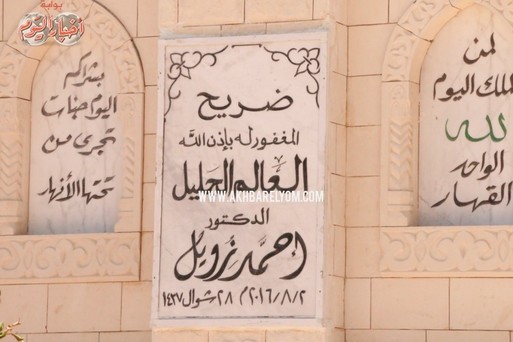 بوابة
أخبار اليوم
لمن
الملك اليوم
لله
الواحد
القهار
ضريح
المغفور له بإذن الله
العالم الجليل
WWW.AKHBARELYOM.COM
الدكتور
أحمد زويل
٢٠١٦/٨/٢م ٢٨ شوال ١٤٣٧
بشراكم
اليوم جنات
تجرى من
تحتها الأنهار